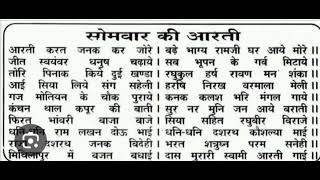 सोमवार की आरती
आरती करत जनक कर जोरे
जीत स्वयंवर धनुष चढ़ाये
तोरि पिनाक किये दुई खण्डा
आई सिया लिये संग सहेली
गज मोतियन के चौक पुराये
कंचन थाल कपूर की बाती
फिरत भांवरी बाजा बाजे
धनि-धनि राम लखन दोऊ भाई
राजा दशरथ जनक विदेही
मिथिलापुर में बजत बधाई
बड़े भाग्य रामजी घर आये मोरे॥
सब भूपन के गर्व मिटाये॥
रघुकुल हर्ष रावण मन शंका॥
हरषि निरख वरमाला मेली॥
कनक कलश भरि मंगल गाये॥
सुर नर मुनि जन आये बराती॥
सिया सहित रघुवीर विराजे॥
धनि-धनि दशरथ कौशल्या माई॥
भरत शत्रुघ्न परम सनेही॥
दास मुरारी स्वामी आरती गाई॥